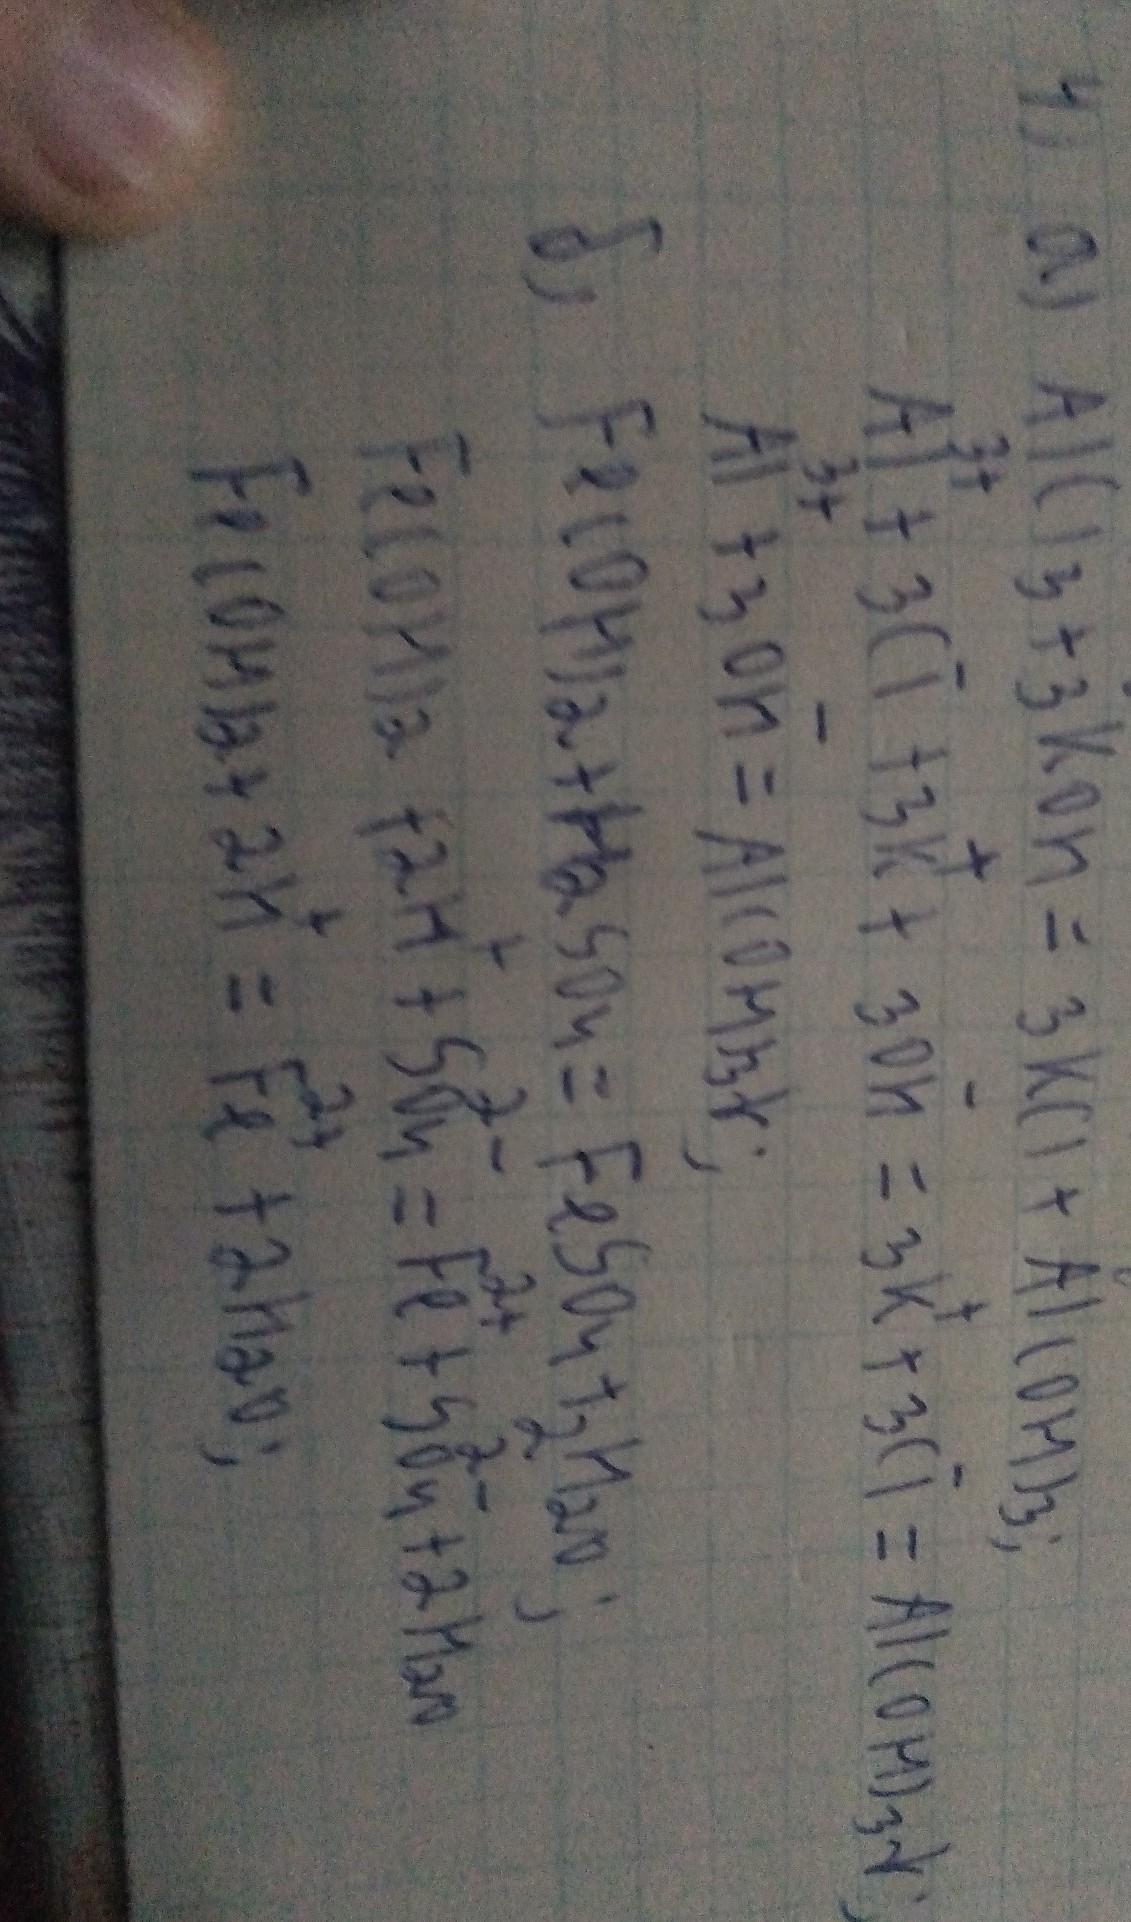 4) а) AlCl3 + 3KOH = 3KCl + Al(OH)3;
Al³⁺ + 3Cl⁻ + 3K⁺ + 3OH⁻ = 3K⁺ + 3Cl⁻ = Al(OH)3↓;
Al³⁺ + 3OH⁻ = Al(OH)3↓;
б) Fe(OH)2 + H2SO4 = FeSO4 + 2H2O;
Fe(OH)2 + 2H⁺ + SO4²⁻ = Fe²⁺ + SO4²⁻ + 2H2O
Fe(OH)2 + 2H⁺ = Fe²⁺ + 2H2O;